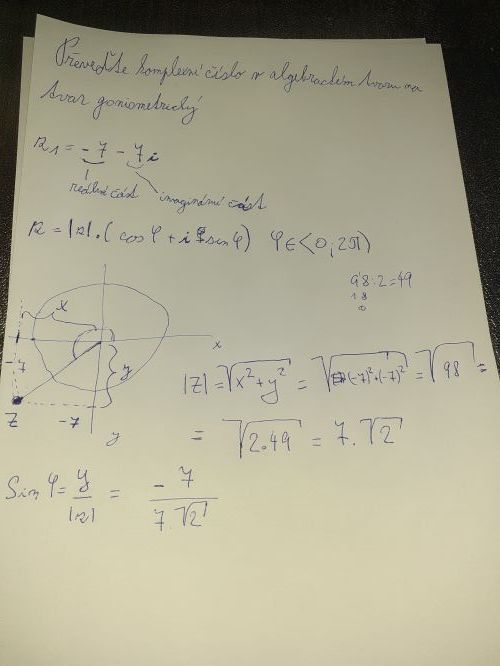 Převeďte komplexní číslo v algebraickém tvaru na
tvar goniometrický
z₁ = -7 - 7i
reálná část
imaginární část
z = |z|·(cos φ + i sin φ) φ∈<0;2π)
98:2=49
18
0
x
x
-7
y
Z
-7
y
|z| = √(x²+y²) = √((-7)²+(-7)²) = √98 =
= √(2·49) = 7·√2
Sin φ = y/|z| = -7/(7·√2)